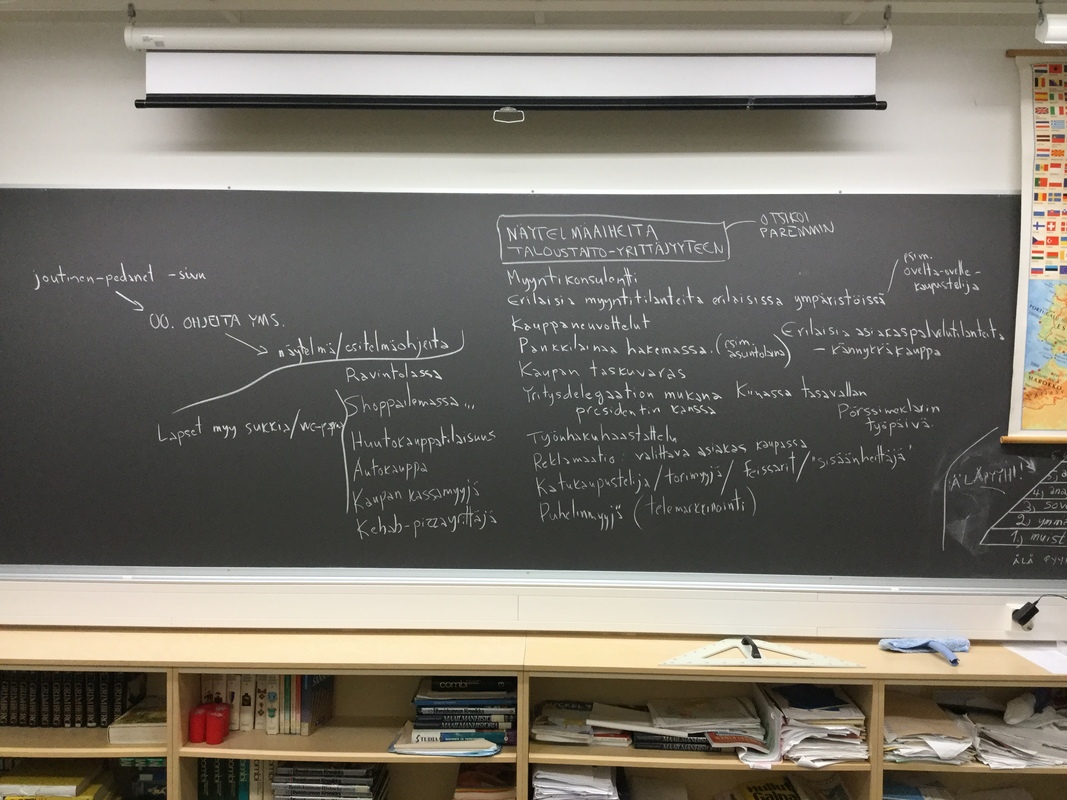 NÄYTELMÄAIHEITA
TALOUSTAITO-YRITTÄJYYTEEN
OTSIKOI
PAREMMIN
joutinen-pedanet -sivu
00. OHJEITA YMS.
näytelmä/esitelmäohjeita
Ravintolassa
Shoppailemassa...
Lapset myy sukkia/WC-
Huutokauppatilaisuus
Autokauppa
Kaupan kassamyyjä
Kebab-pizzayrittäjä
Myyntikonsulentti
Erilaisia myyntitilanteita erilaisissa ympäristöissä
esim.
ovelta-ovelle-
kaupustelija
Kauppaneuvottelut
Pankkilainaa hakemassa. (esim. asuntolaina)
Erilaisia asiakaspalvelutilanteita
- kännykkäkauppa
Kaupan taskuvaras
Yritysdelegaation mukana Kiinassa tasavallan
presidentin kanssa
Pörssimeklarin
työpäivä.
Työnhakuhaastattelu
Reklamaatio: valittava asiakas kaupassa
Katukaupustelija/torimyyjä/feissarit/"sisäänheittäjä"
Puhelinmyyjä (telemarkkinointi)
4) ana
3) sov
2) ymm
1) muist
ÄLÄ
PORTUGAL
MAROKKO
combi
STUDIA